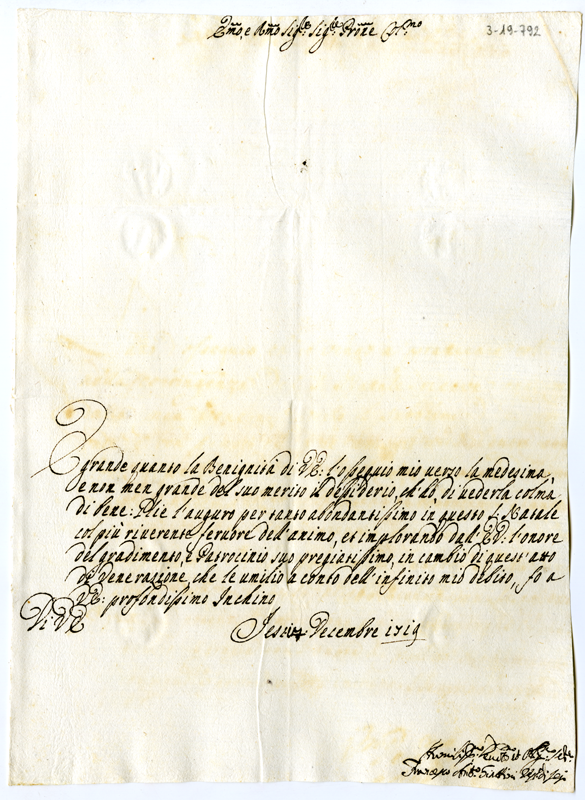 Em̃o, e Rm̃o Sig.re Sig.re Pr͠one Col.mo
3-19-792
È grande quanto la Benignità di V.E: l'ossequio mio verso la medesima,
e non men grande del suo merito il desiderio, ch'ho, di vederla colma
di bene: Il'auguro per tanto abondantissimo in questo S. Natale
col più riverente fervore dell'animo, et implorando dall'E.V: l'onore
del gradimento, e Patrocinio suo pregiatissimo, in cambio di quest'atto
di Venerazione, che le umilio a conto dell'infinito mio debito, fo a
V.E: profondissimo Inchino
Di V.E.
Jesi Decembre 1719
Humiliss.o